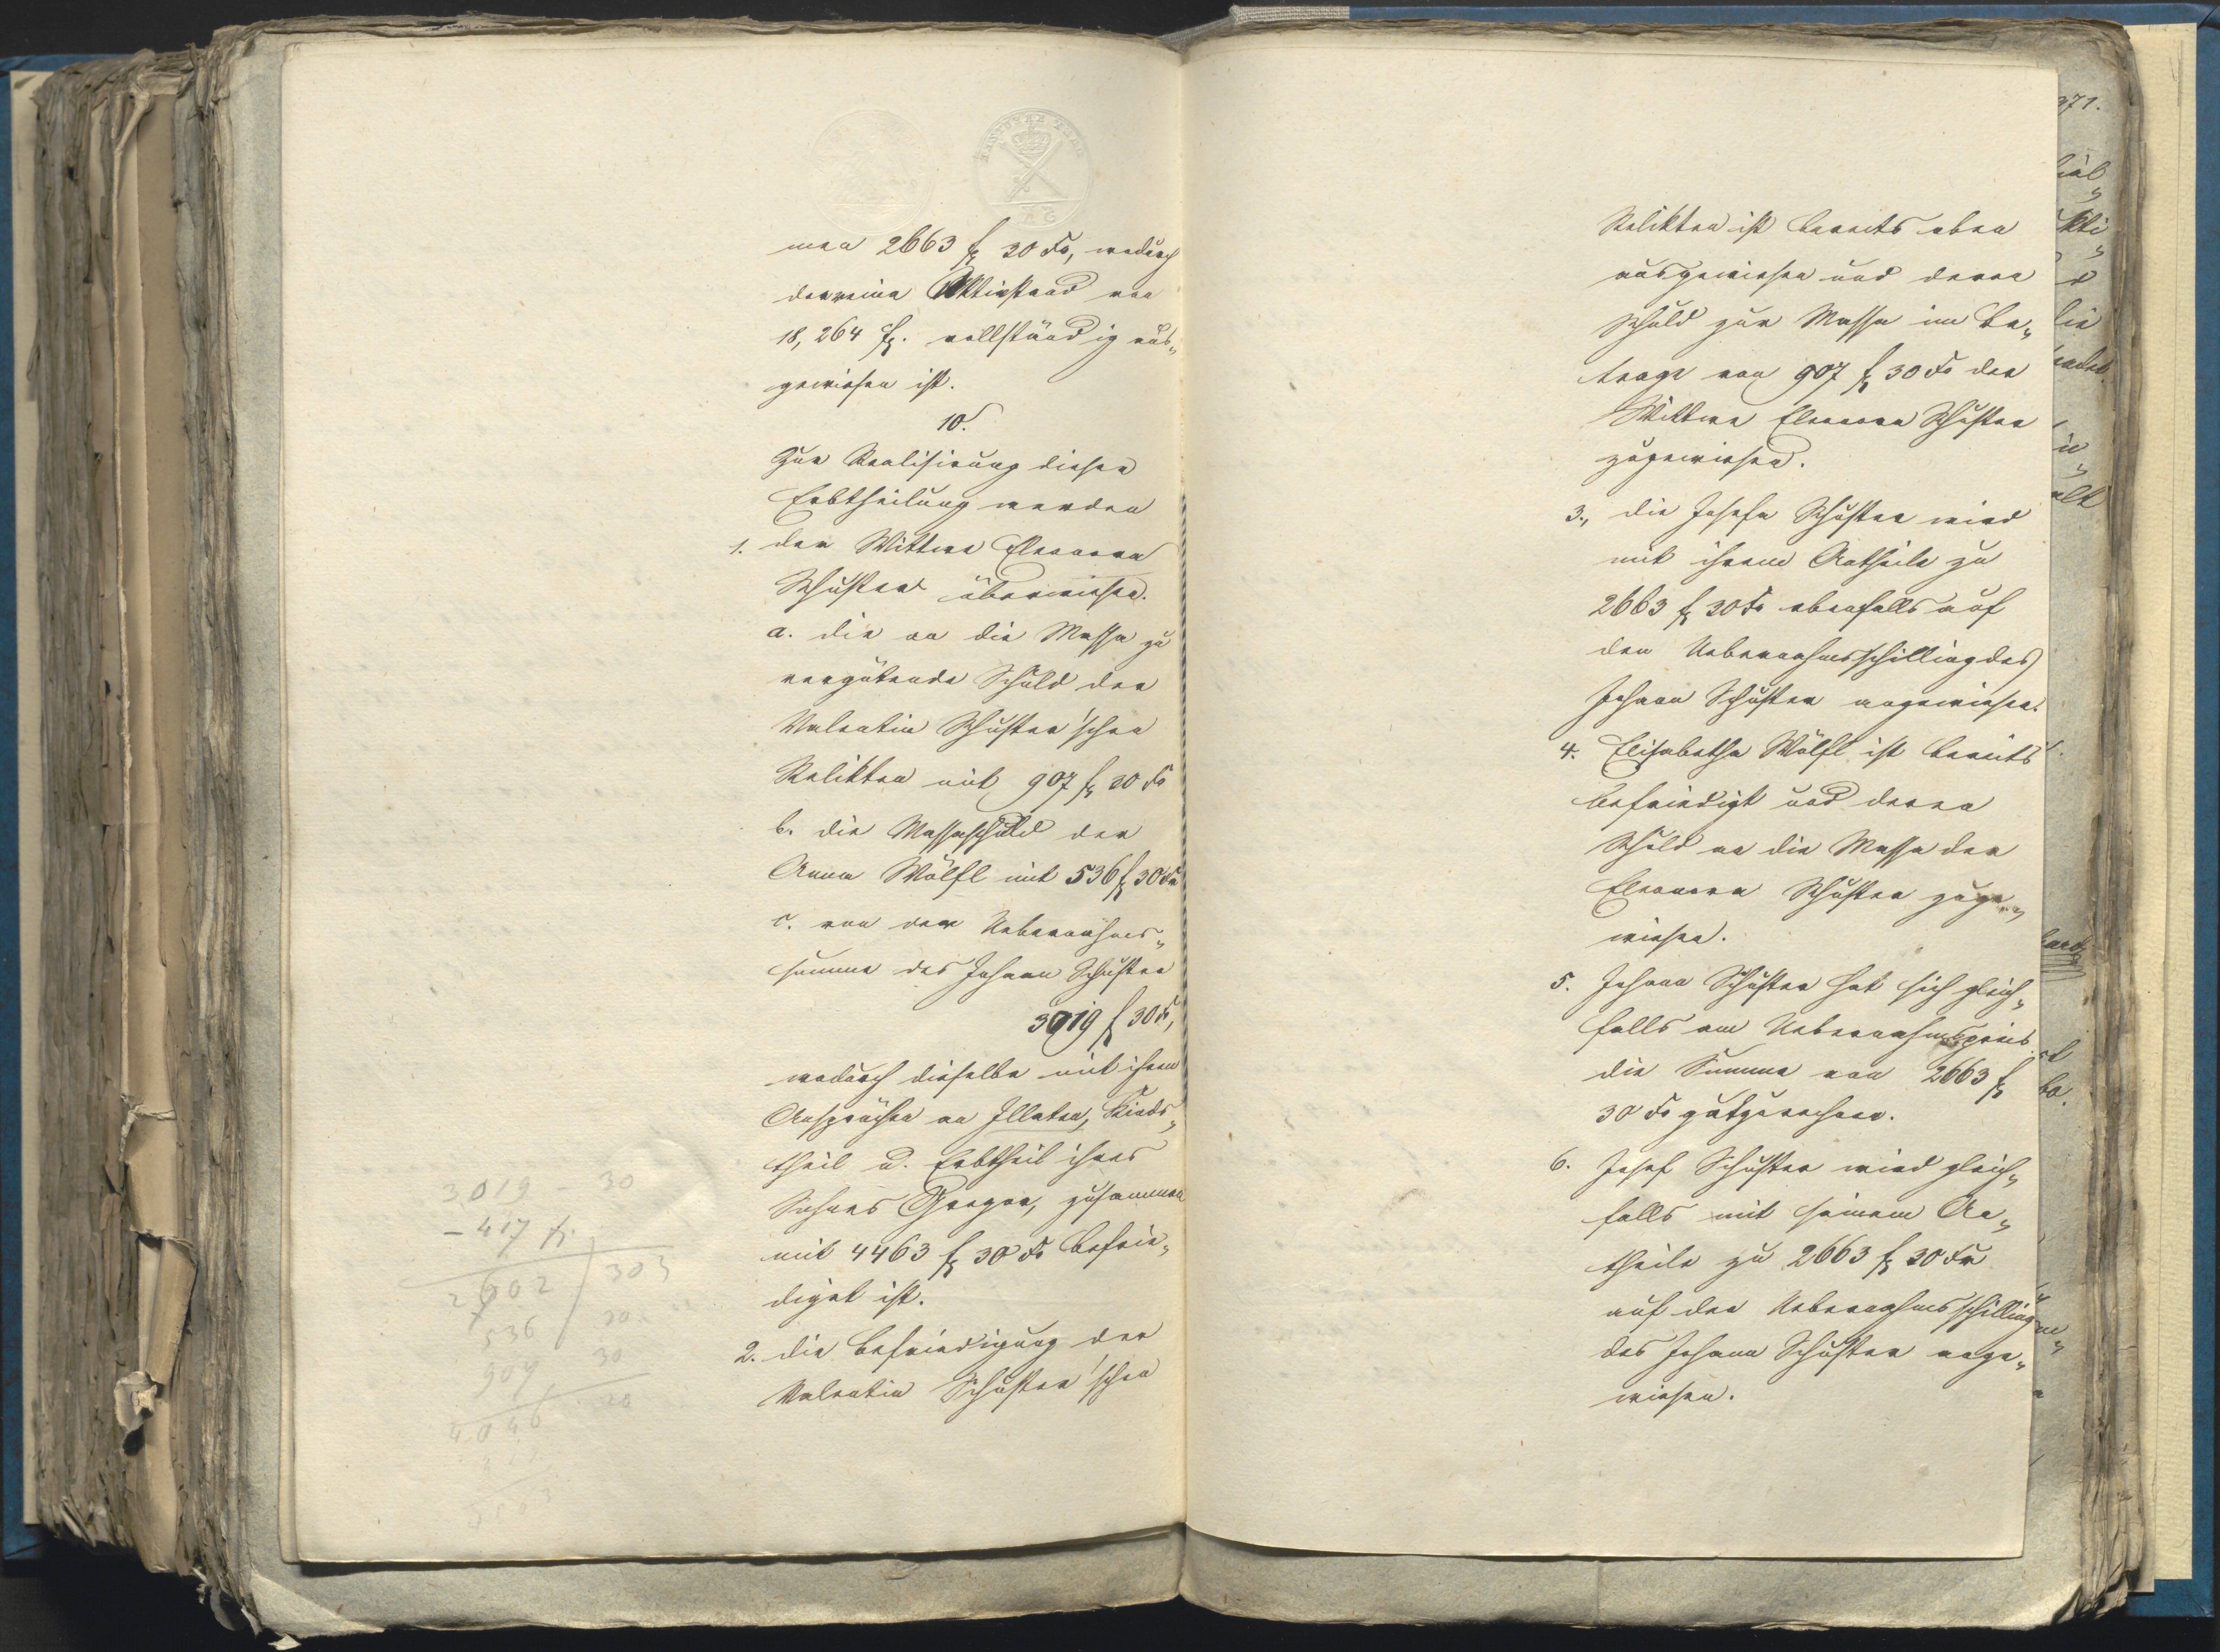 men 2663 fl 30 Xr, wodurch
der reine Aktivstand von
18,264 fl. vollständig aus„
gewiesen ist.
10.
Zur Realisirung dieser
Erbtheilung werden
1. der Wittwe Eleonora
Schuster überwiesen.
a. die an die Massa zu
vergütende Schuld der
Valentin Schuster'schen
Relikten mit 907 fl 30 Xr
b. die Massaschuld der
Anna Wölfl mit 536 fl 30 Xr
c. von der Uebernahms„
summe des Johann Schuster
3019 fl 30 Xr,
wodurch dieselbe mit ihren
Ansprüchen an Illaten, Kinds„
theil u. Erbtheil ihres
Sohnes Gregor, zusammen
mit 4463 fl 30 Xr befrie„
diget ist.
2. die Befriedigung der
Valentin Schuster'schen
3019 – 30
– 417 fl.
2602 303
536 30
909 30
4046 20
Relikten ist bereits oben
ausgewiesen und deren
Schuld zur Massa im Be„
trage von 907 fl 30 Xr der
Wittwe Eleonora Schuster
zugewiesen.
3., die Josefa Schuster wird
mit ihrem Antheile zu
2663 fl 30 Xr ebenfalls auf
den Uebernahmsschilling des
Johann Schuster angewiesen.
4. Elisabetha Wölfl ist bereits
befriedigt und deren
Schuld an die Massa der
Eleonora Schuster zuge„
wiesen.
5. Johann Schuster hat sich gleich„
falls am Uebernahmspreis
die Summe von 2663 fl
30 Xr gutgerechnet.
6. Josef Schuster wird gleich„
falls mit seinem An„
theile zu 2663 fl 30 Xr
auf den Uebernahmsschilling
des Johann Schuster ange„
wiesen.
371.